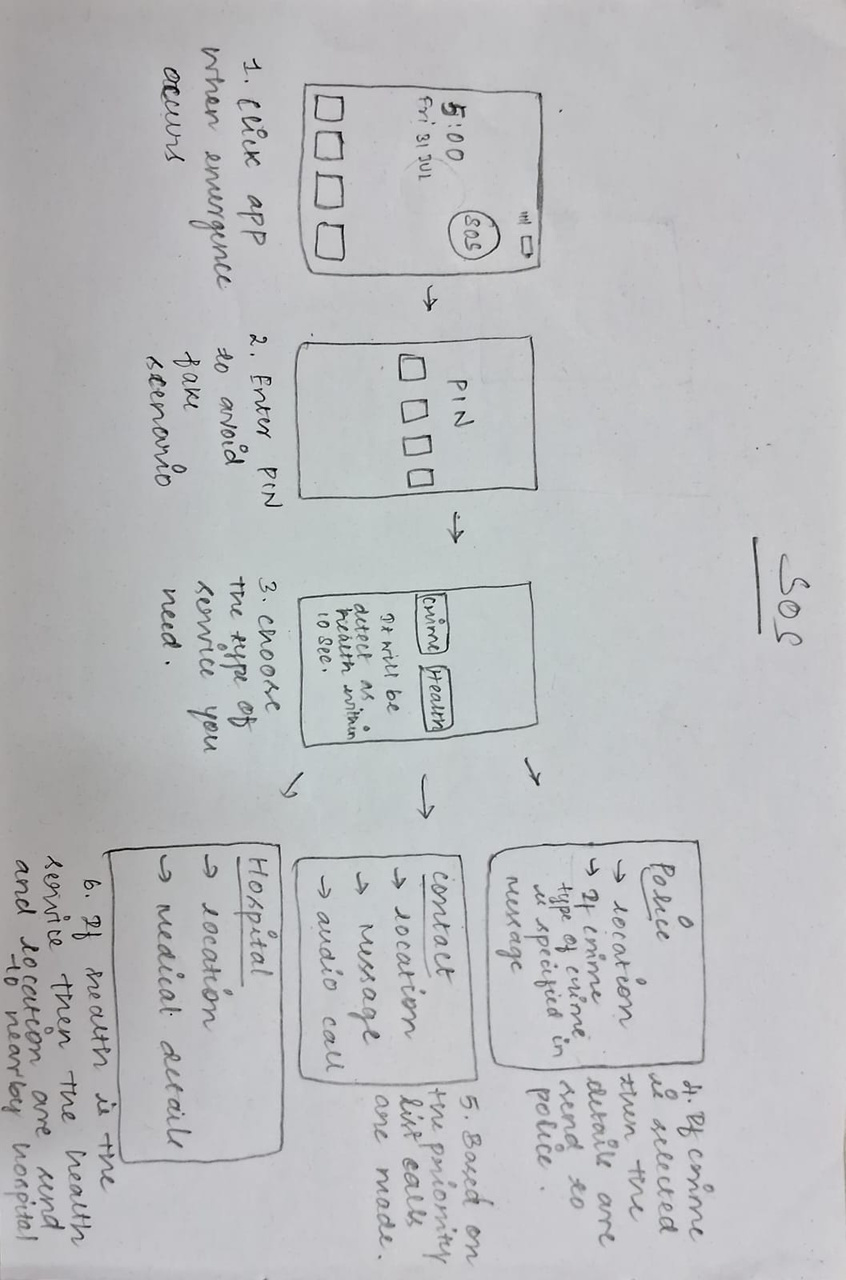 SOS
5:00
Fri 31 JUL
SOS
1. Click app
when emergence
occurs
PIN
2. Enter PIN
to avoid
fake
scenario
Crime Health
It will be
detect as
health within
10 sec.
3. choose
the type of
service you
need.
Police
→ location
→ If crime
type of crime
is specified in
message
4. If crime
is selected
then the
details are
send to
police.
contact
→ location
→ Message
→ audio call
5. Based on
the priority
list calls
are made.
Hospital
→ location
→ Medical details
6. If health is the
service then the health
and location are send
to nearby hospital